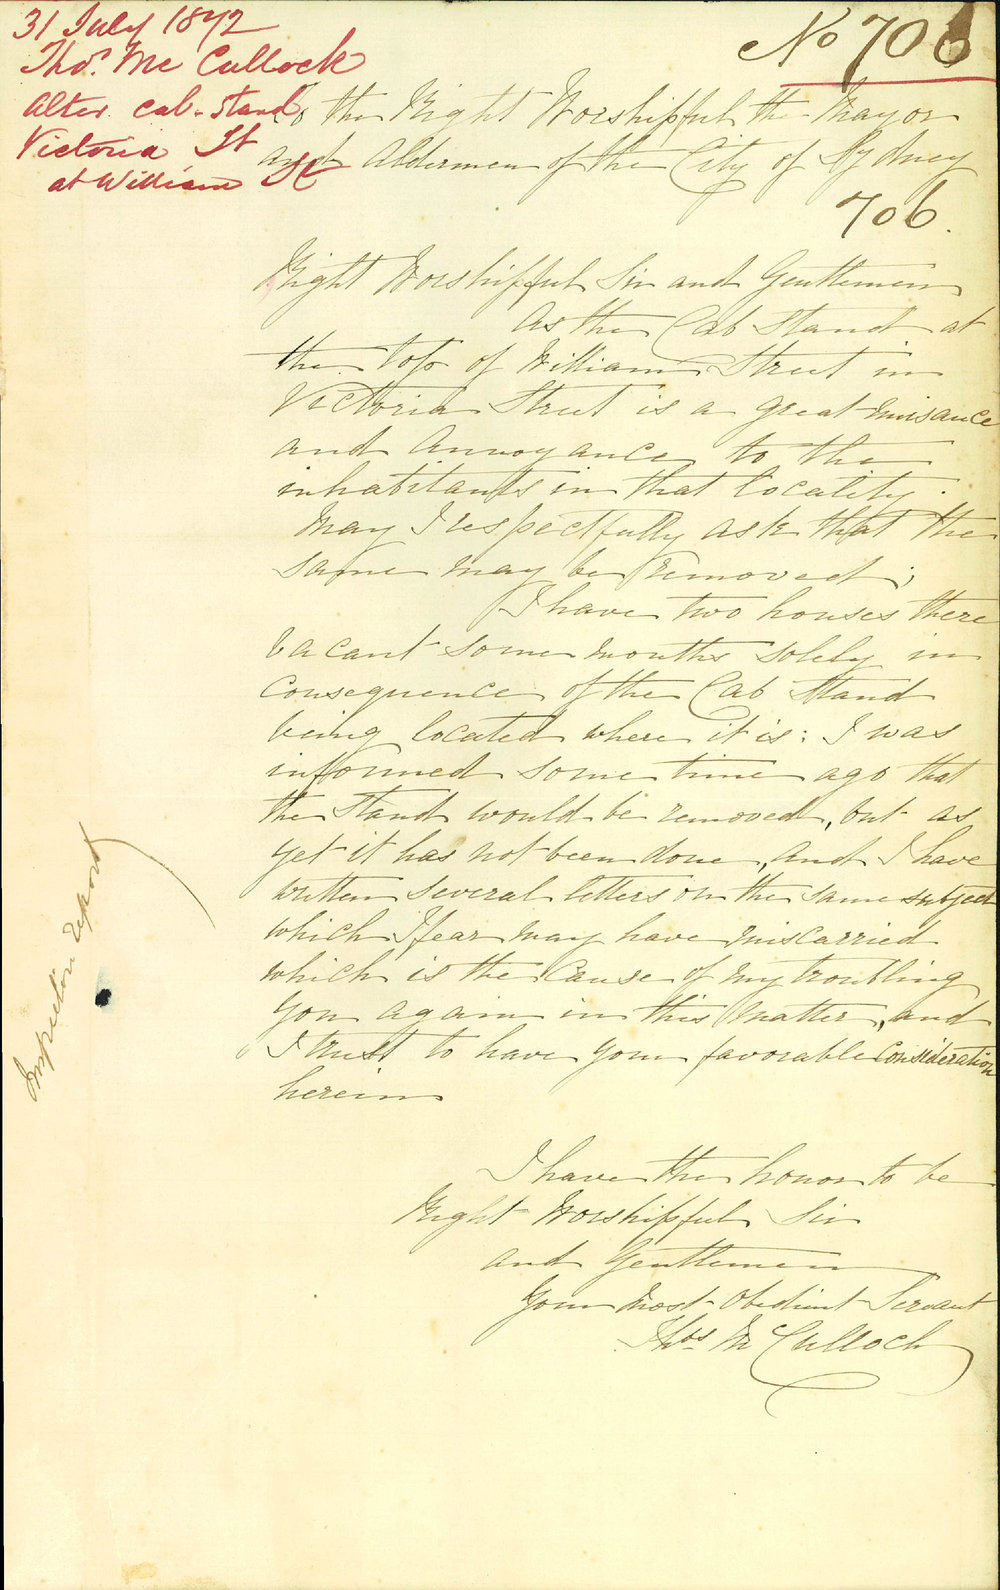 31 July 1872
Thos. Mc Cullock
alter cab-stand
Victoria St
at William St
No 706
To the Right Worshipful the Mayor
and Aldermen of the City of Sydney
706.
Right Worshipful Sir and Gentlemen
As the Cab Stand at
the top of William Street in
Victoria Street is a great nuisance
and annoyance to the
inhabitants in that locality.
May I respectfully ask that the
same may be removed;
I have two houses there
vacant some months solely in
consequence of the Cab Stand
being located where it is: I was
informed some time ago that
the Stand would be removed, but as
yet it has not been done, and I have
written several letters on the same subject
which I fear may have miscarried
which is the cause of my troubling
you again in this matter, and
I trust to have your favorable consideration
herein
I have the honor to be
Right Worshipful Sir
and Gentlemen
Your Most Obedient Servant
Thos Mc Culloch
Inspector report